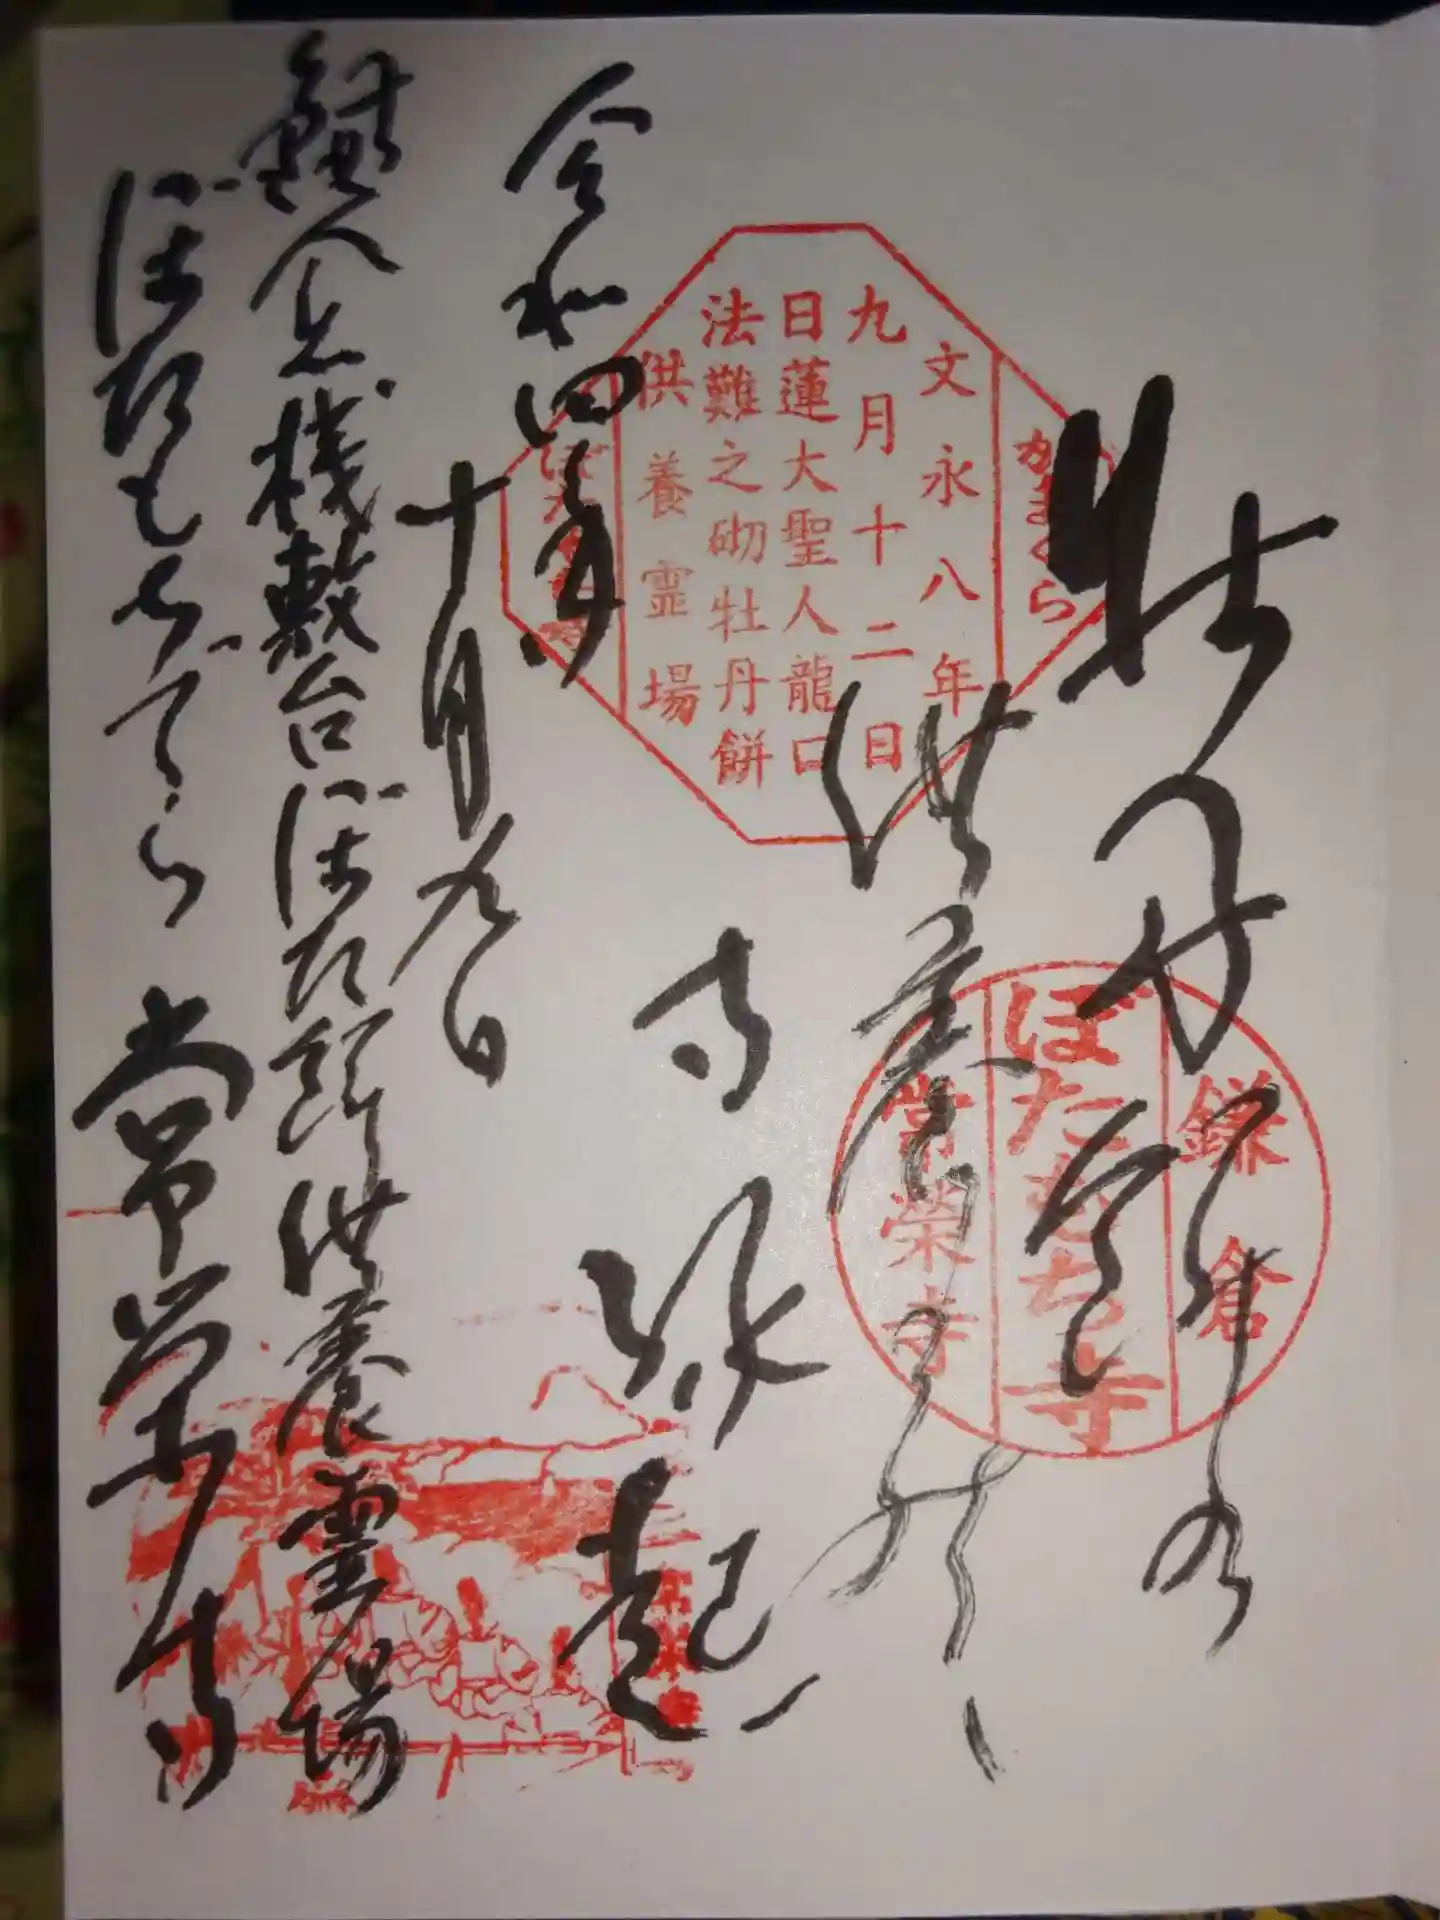 牡丹餅の
供養の
寺縁起
令和四年
十月九日
鎌倉桟敷台ぼた餅供養霊場
ぼたもちでら 常栄寺
かまくら
文永八年
九月十二日
日蓮大聖人龍口
法難之砌牡丹餅
供養霊場
鎌倉
ぼたもち寺
常榮寺